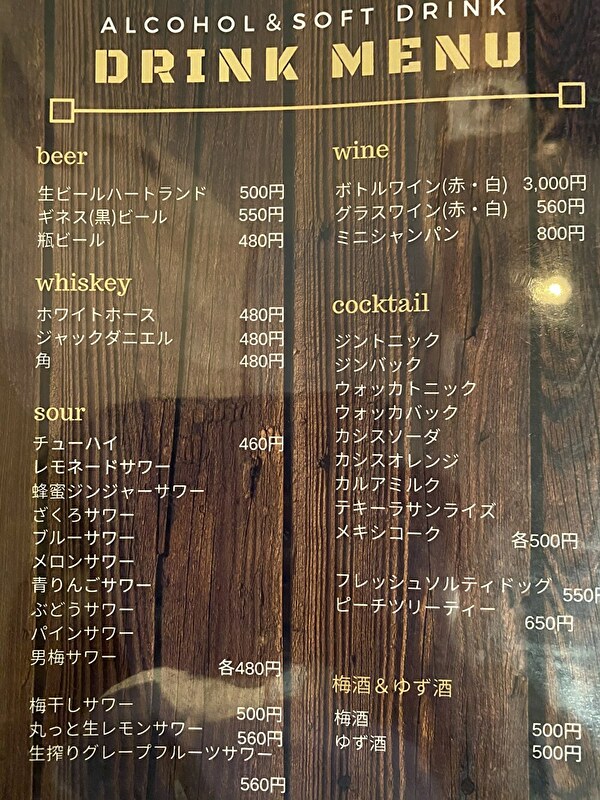 ALCOHOL & SOFT DRINK
DRINK MENU
beer
生ビールハートランド 500円
ギネス(黒)ビール 550円
瓶ビール 480円
whiskey
ホワイトホース 480円
ジャックダニエル 480円
角 480円
sour
チューハイ 460円
レモネードサワー
蜂蜜ジンジャーサワー
ざくろサワー
ブルーサワー
メロンサワー
青りんごサワー
ぶどうサワー
パインサワー
男梅サワー
各480円
梅干しサワー 500円
丸っと生レモンサワー 560円
生搾りグレープフルーツサワー
560円
wine
ボトルワイン(赤・白) 3,000円
グラスワイン(赤・白) 560円
ミニシャンパン 800円
cocktail
ジントニック
ジンバック
ウォッカトニック
ウォッカバック
カシスソーダ
カシスオレンジ
カルアミルク
テキーラサンライズ
メキシコーク
各500円
フレッシュソルティドッグ 550円
ピーチツリーティー
650円
梅酒＆ゆず酒
梅酒 500円
ゆず酒 500円